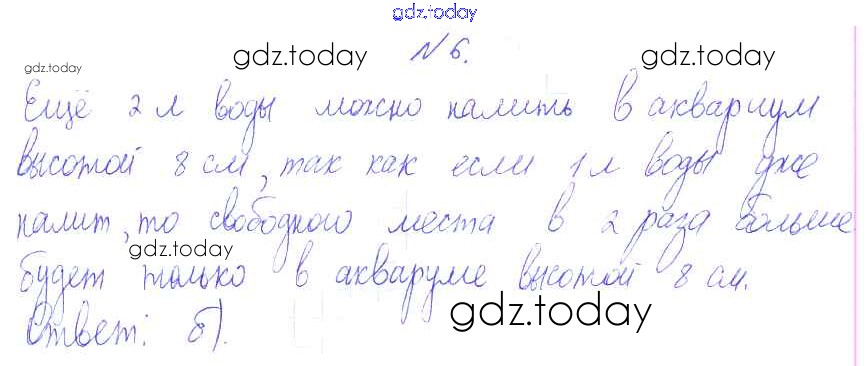 gdz.today
№ 6.
gdz.today
gdz.today
gdz.today
Ещё 2 л воды можно налить в аквариум
высотой 8 см, так как если 1 л воды уже
налит, то свободного места в 2 раза больше
gdz.today
будет только в акваруме высотой 8 см.
gdz.today
Ответ: б).